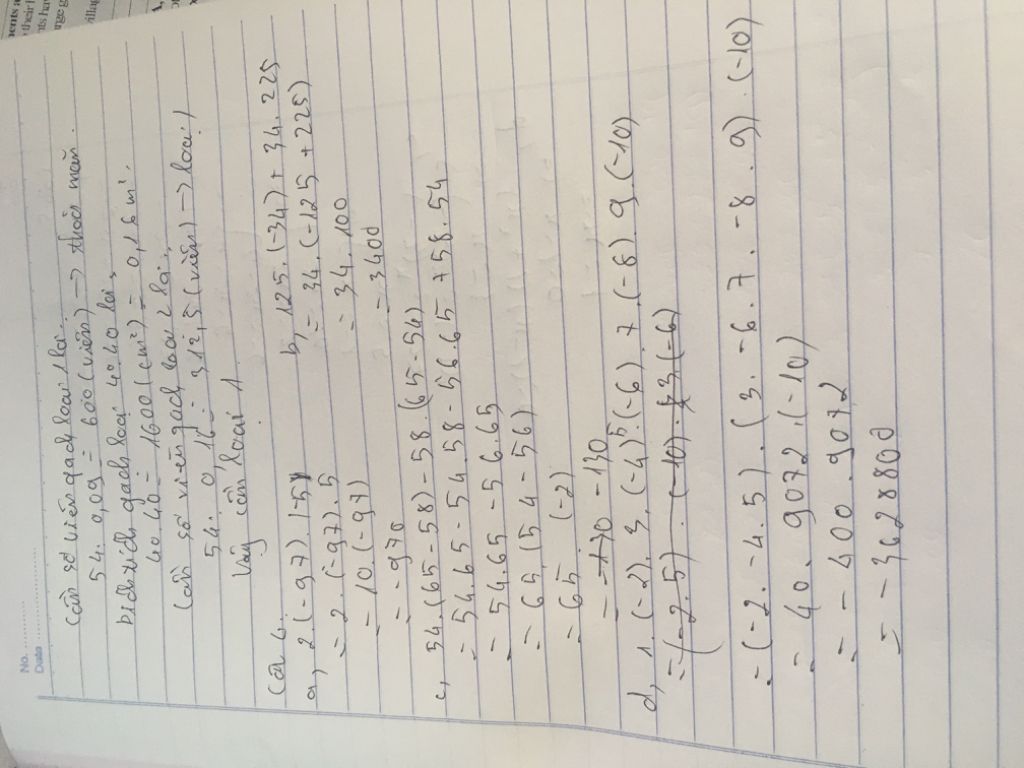 No. ..........
Date ..........
Cần số viên gạch loại 1 là:
54 : 0,09 = 600 (viên) -> thỏa mãn.
Diện tích gạch loại 40.40 là,
40.40 = 1600 (cm²) = 0,16 m².
Cần số viên gạch loại 2 là:
54 : 0,16 = 312,5 (viên) -> loại!
Vậy cần loại 1
Câu 4.
a, 2.(-97).(-5)
= 2.(-97).5
= 10.(-97)
= -970
b, 125.(-34) + 34.225
= 34.(-125 + 225)
= 34.100
= 3400
c, 54.(65-58) - 58.(65-54)
= 54.65 - 54.58 - 56.65 + 58.54
= 54.65 - 56.65
= 65.(54 - 56)
= 65 (-2)
= -130
d, 1.(-2).3.(-4).5.(-6).7.(-8).9.(-10)
= (-2.5).(-10).3(-6)
= (-2.-4.5).(3.-6.7.-8.9).(-10)
= 40.9072.(-10)
= -400.9072
= -3628800